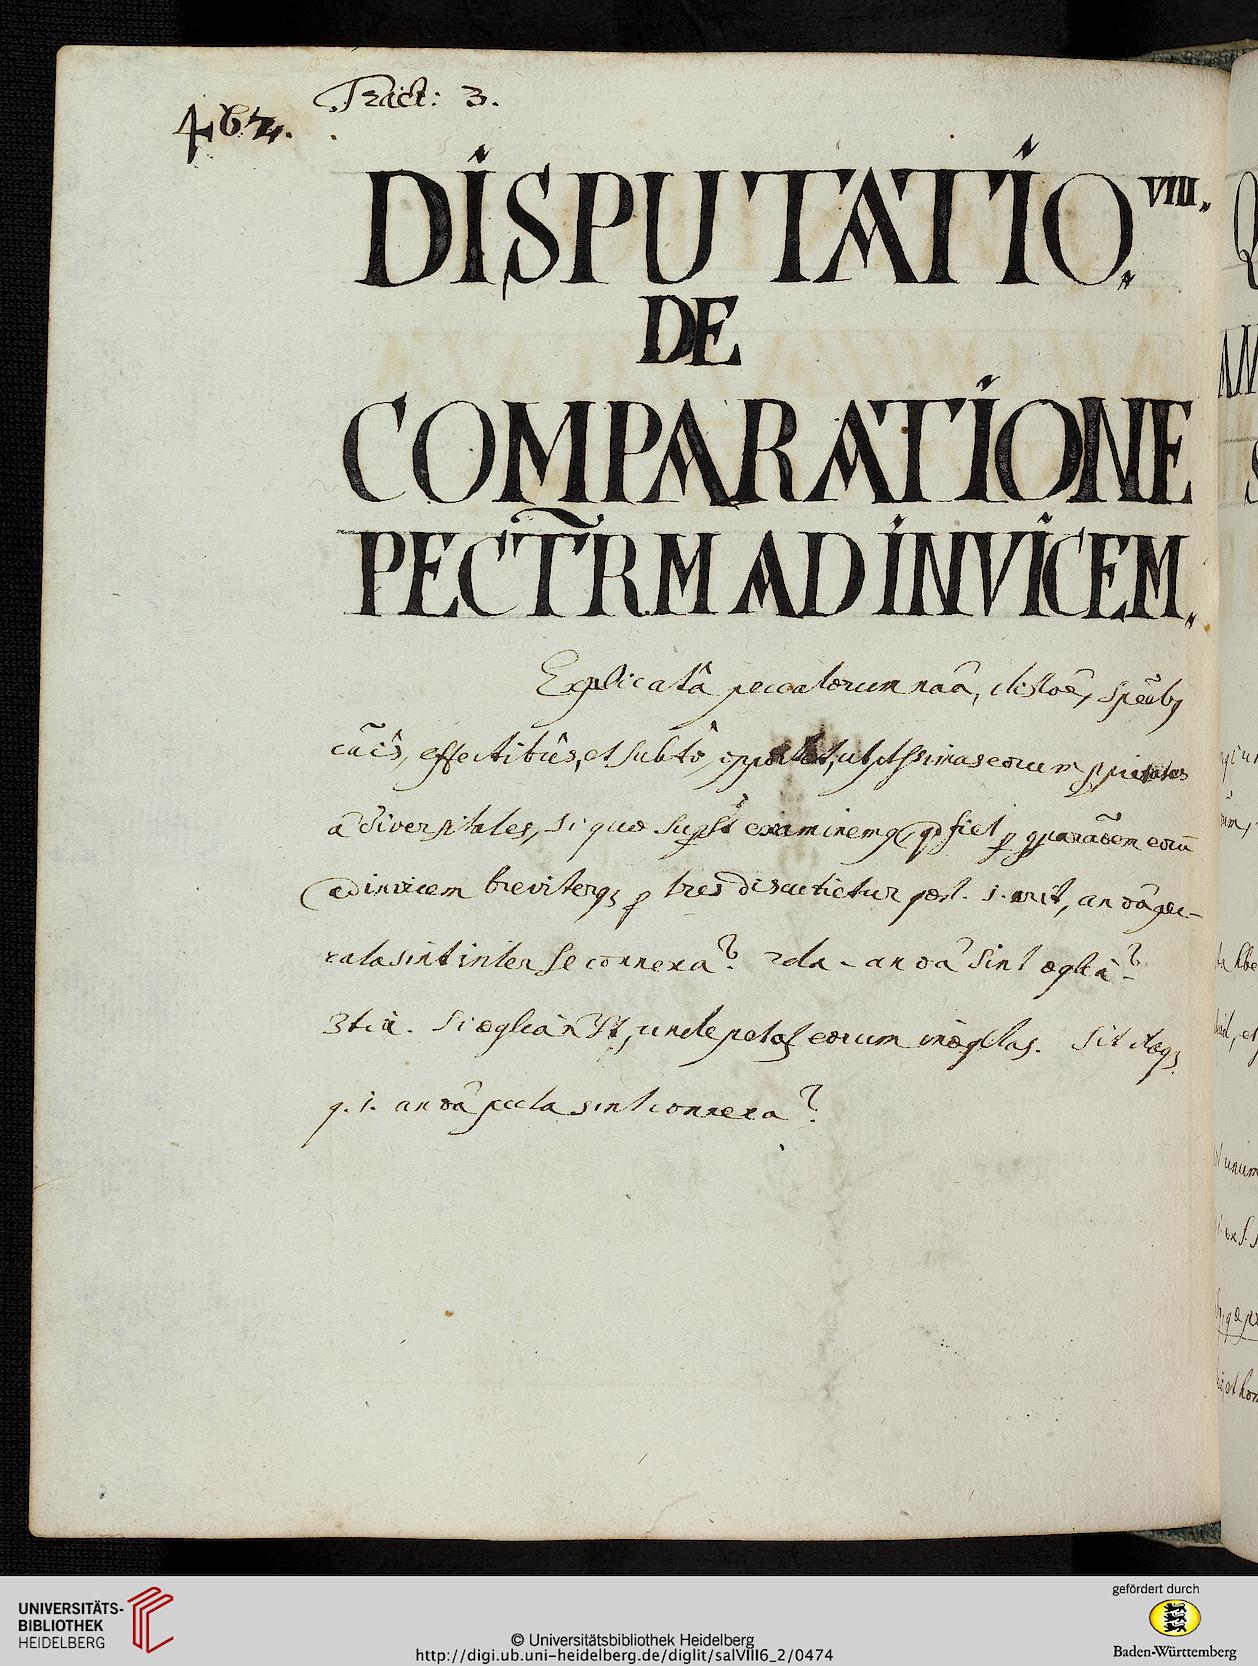 Tract: 3.
464.
DISPUTATIO VIII.
DE
COMPARATIONE
PECTR̃M AD INVICEM.
Explicatâ peccatorum naâ, distõe, speẽbq
caũis, effectibûs, et subtô, oportet, ut ptssimas eorum pprietates
â diversitates, si quæ supst examinemq, qd fiet p qparaõem eorũ
ad invicem breviterqz p tres discutietur qest. 1. erit, an oâ pec-
cata sint inter se connexa? 2da - an oâ sint æqliâ?
3tia. Si æqliâ n st, unde petaʃ eorum inæqltas. Sit itaqz
q. 1. an oâ pccta sint connexa?
UNIVERSITÄTS-
BIBLIOTHEK
HEIDELBERG
© Universitätsbibliothek Heidelberg
http://digi.ub.uni-heidelberg.de/diglit/salVIII6_2/0474
gefördert durch
Baden-Württemberg